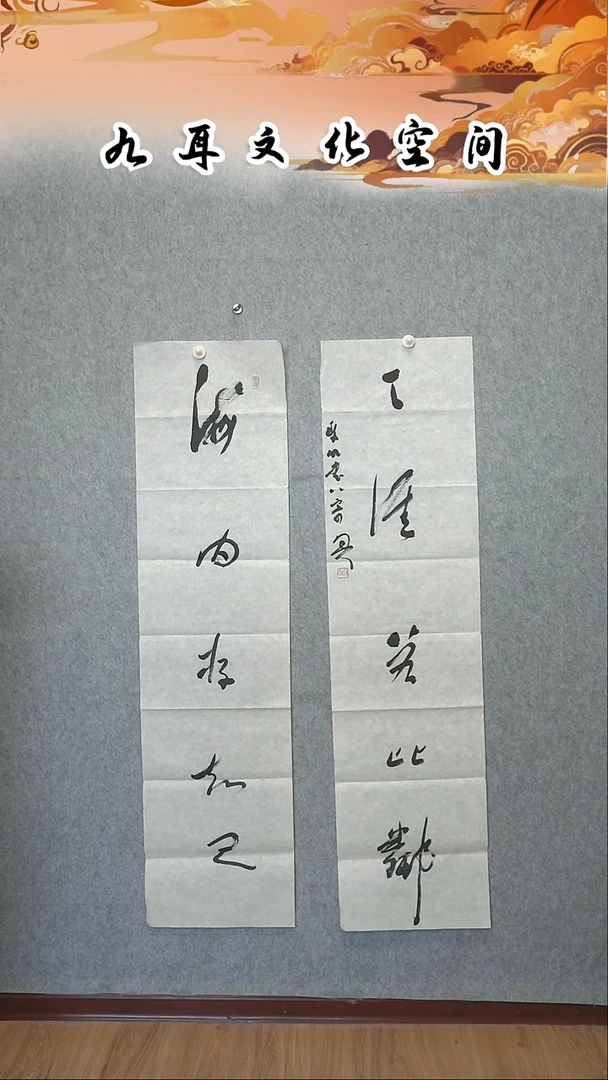 九耳文化空间
海内存知己
天涯若比邻